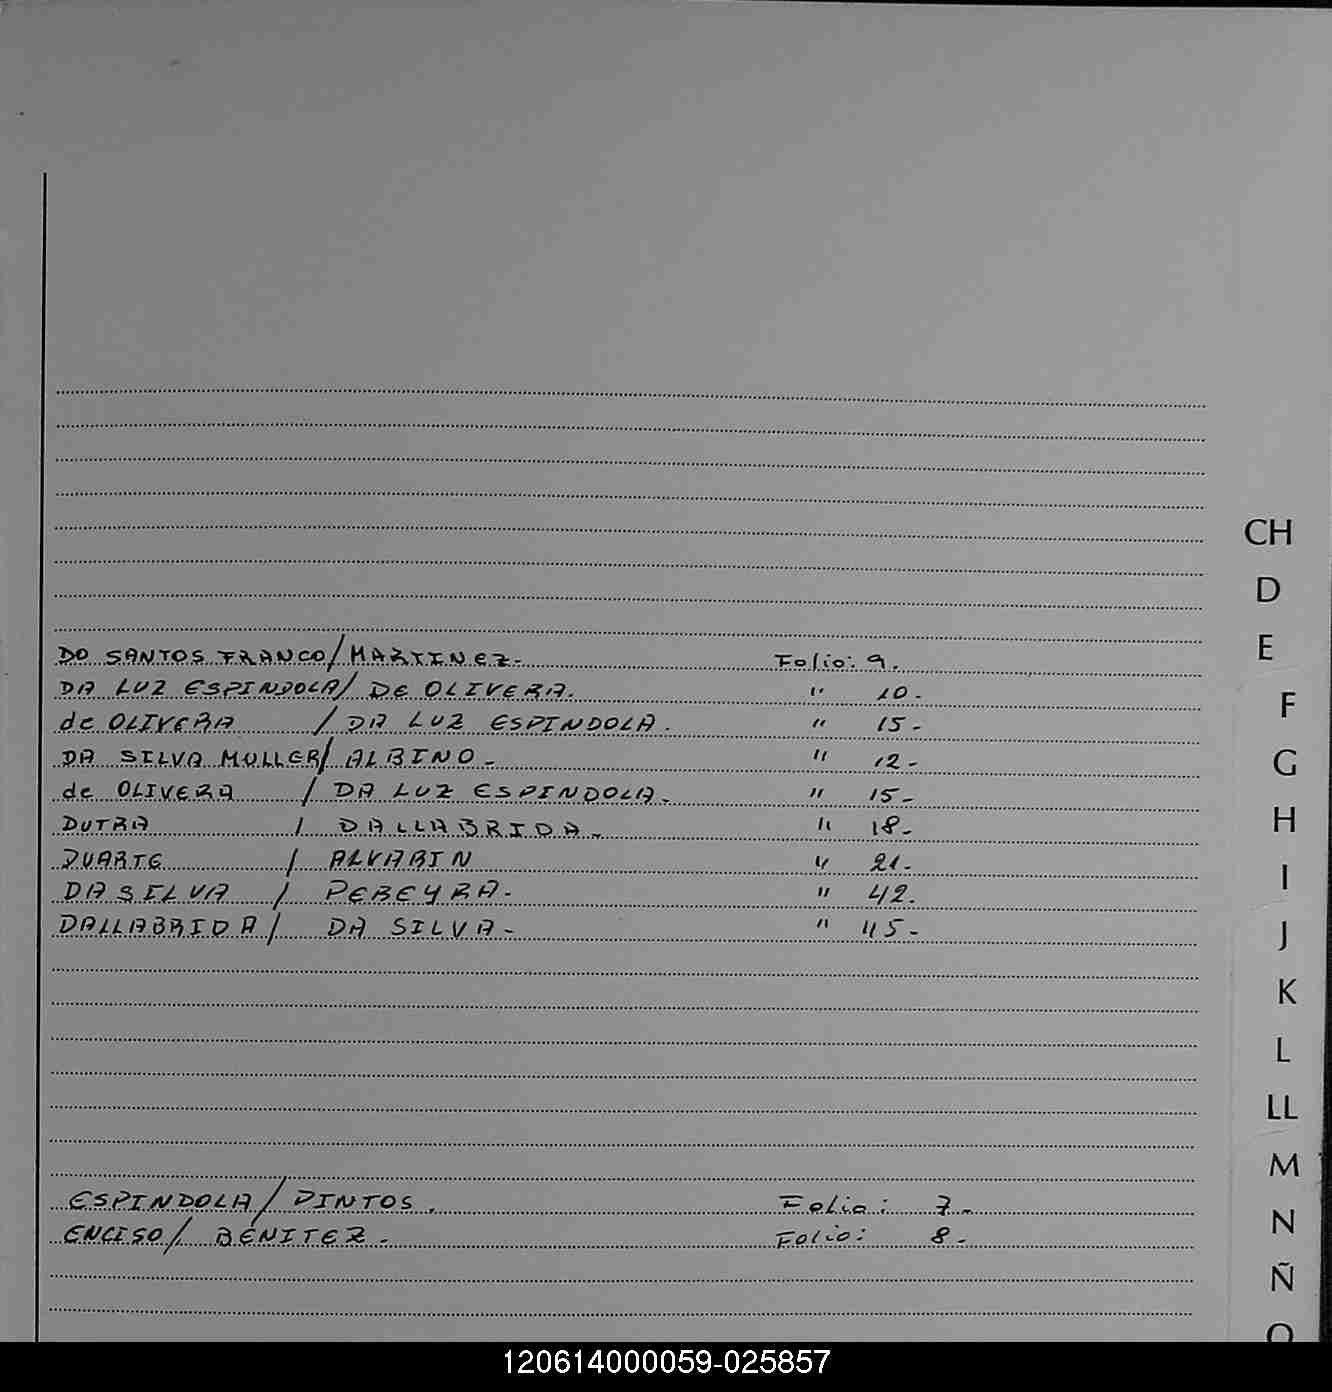 DO SANTOS FRANCO/MARTINEZ- Folio: 9.
DA LUZ ESPINDOLA/ DE OLIVERA. " 10-
de OLIVERA / DA LUZ ESPINDOLA. " 15-
DA SILVA MULLER/ ALBINO- " 12-
de OLIVERA / DA LUZ ESPINDOLA- " 15-
DUTRA / DALLABRIDA- " 18-
DUARTE / ALVARIN " 21-
DA SILVA / PEREYRA- " 42.
DALLABRIDA/ DA SILVA- " 45-
ESPINDOLA/PINTOS. Folio: 7-
ENCISO/ BENITEZ. Folio: 8-
CH
D
E
F
G
H
I
J
K
L
LL
M
N
Ñ
O
120614000059-025857